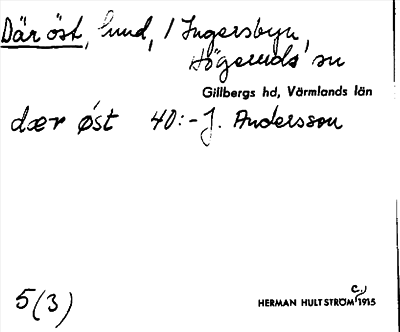 Där öst, lund, / Ingersbyn,
Högeruds sn
Gillbergs hd, Värmlands län
dær øst 40:- J. Andersson
5(3)
HERMAN HULTSTRÖM c.) 1915